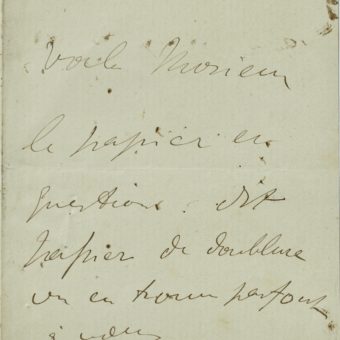 Voila Monsieur
le papier en
question. dit
papier de doublure
on en trouve partout
à vous